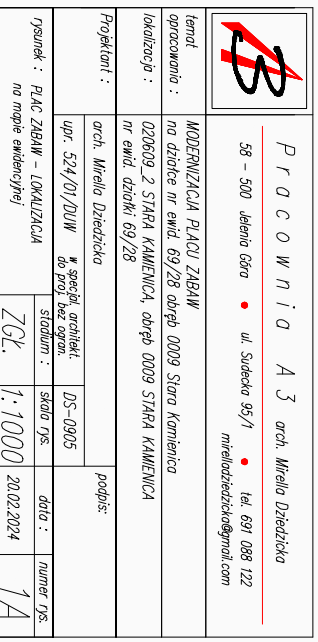 Pracownia A3 arch. Mirella Dziedzicka
58 - 500 Jelenia Góra • ul. Sudecka 95/1 • tel. 691 088 122
mirelladziedzicka@gmail.com
temat opracowania : MODERNIZACJA PLACU ZABAW
na działce nr ewid. 69/28 obręb 0009 Stara Kamienica
lokalizacja : 020609_2 STARA KAMIENICA, obręb 0009 STARA KAMIENICA
nr ewid. działki 69/28
Projektant : arch. Mirella Dziedzicka
podpis:
upr. 524/01/DUW w specjal. architekt. do proj. bez ogran. DS-0905
rysunek : PLAC ZABAW - LOKALIZACJA
na mapie ewidencyjnej
stadium : skala rys. data : numer rys.
ZGŁ. 1:1000 20.02.2024 1A